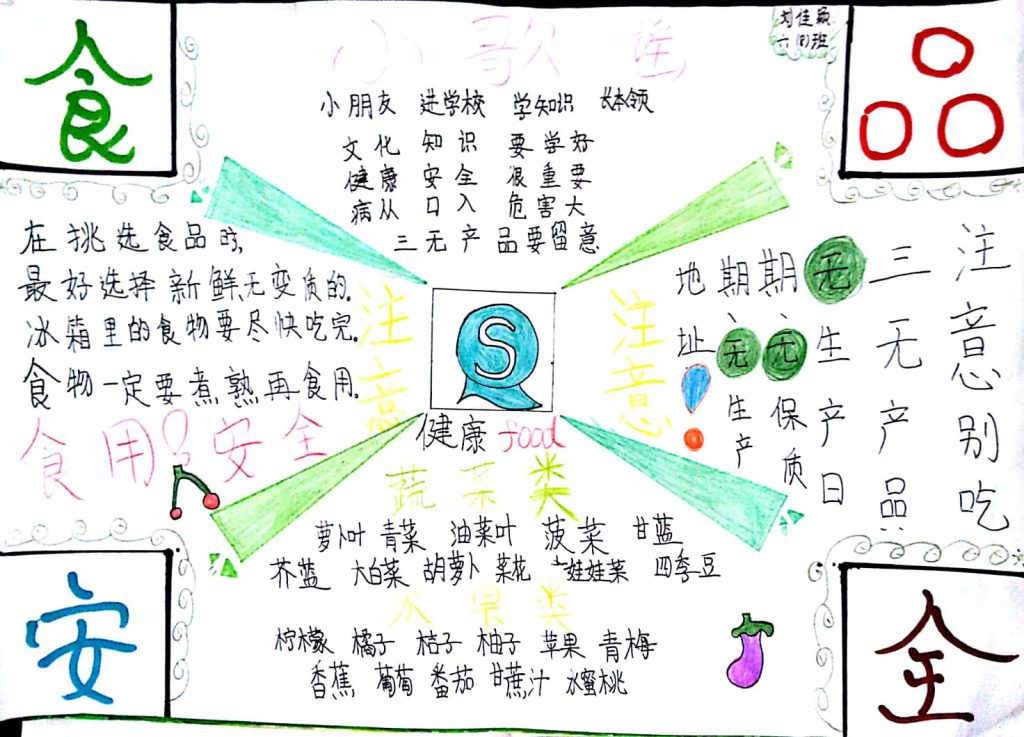 食
品
安
全
小歌谣
刘佳
六(8)班
小朋友 进学校 学知识 长本领
文化 知识 要学好
健康 安全 很重要
病从 口入 危害大
三无产品要留意
在挑选食品时,
最好选择新鲜无变质的.
冰箱里的食物要尽快吃完.
食物一定要煮熟再食用.
食用安全
注意
S
注意
健康 food
注意别吃
三无产品
无生产日
期、无保质
期、无生产
地址!
蔬菜类
萝卜叶 青菜 油菜叶 菠菜 甘蓝
芥蓝 大白菜 胡萝卜 菜花 娃娃菜 四季豆
水果类
柠檬 橘子 桔子 柚子 苹果 青梅
香蕉 葡萄 番茄 甘蔗汁 水蜜桃